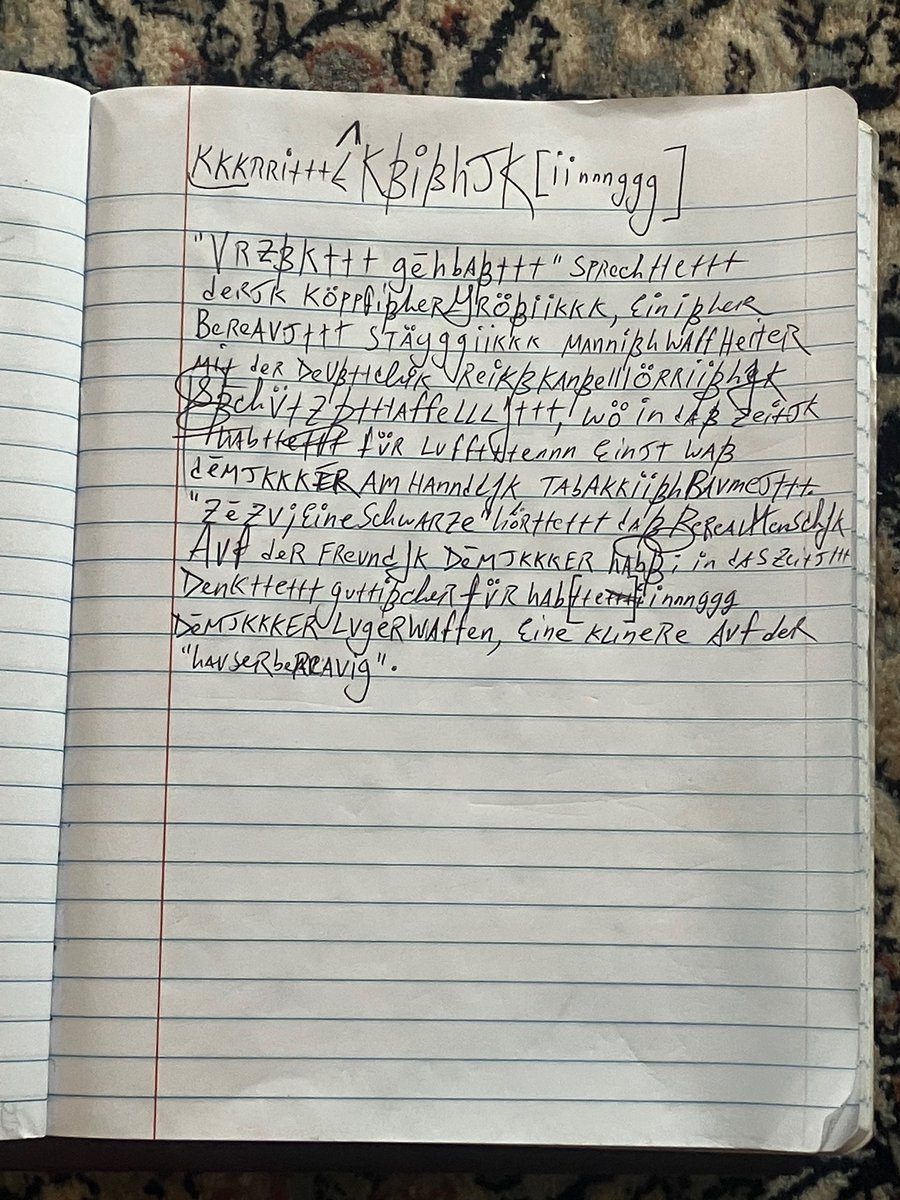 KKKRRittt KßißhJK [iinnnggg]
"VRZßKttt gēhbAßttt" SPRechttettt
deRJK KÖPPfißheR GRÖßiikkk, EinißheR
BeReAVJttt STÄYggiikkk MANNißhWAffHeiteR
Mit deR DeVßttchJK ReiKßKAnßelllÖRRiißhJK
SßchÜtZßttHAffeLLLJttt, WÖ in dAß ZeitJK
thAbttettt fÜR LVfftJtennn EinST WAß
dĒMJKKKER AM HAnndLJK TAbAKKiißhBAVMeJttt.
"ZēZVjEine SchWARZe" hÖRttettt dAß BeReAVMenschJK
AVf deR FReundJK DĒMJKKKER hAbß; in dAS ZeitJttt
DenKttettt gVttißcheR fÜR hAb[ttettt]iinnnggg
DĒMJKKKER LVgeRWAffen, Eine KLineRe AVf deR
"hAVSeRbeREAVig".